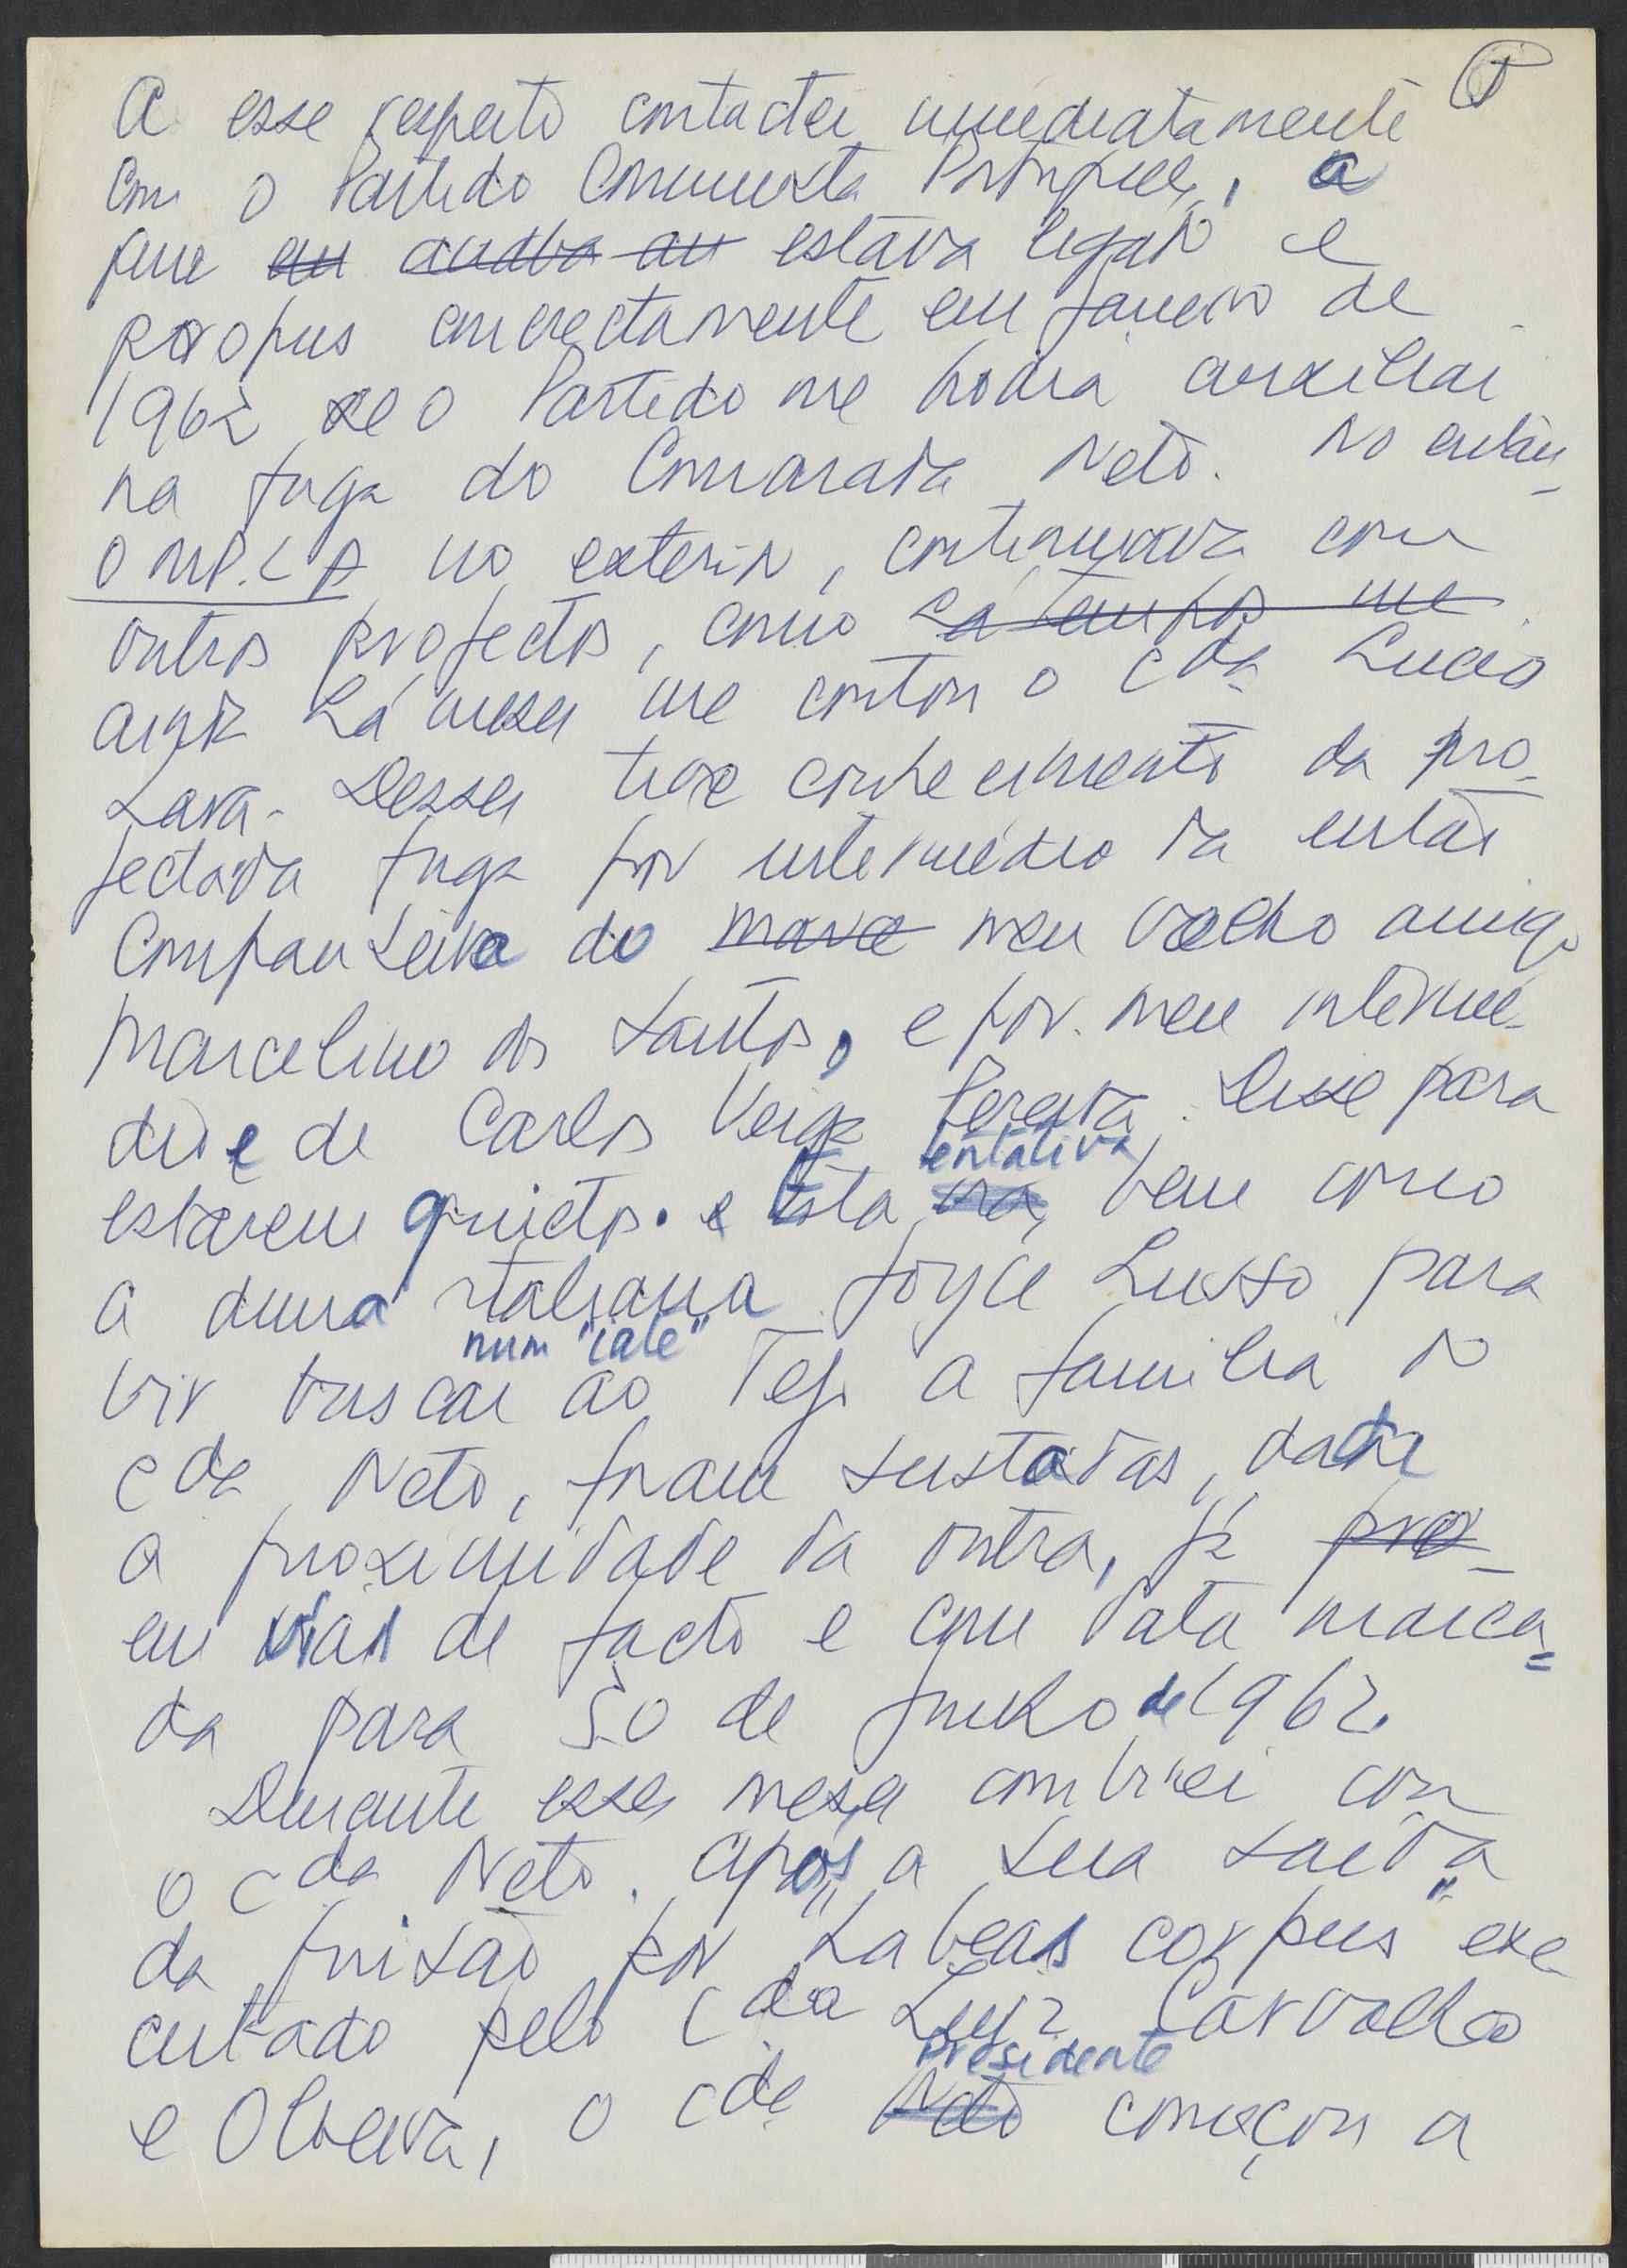 A esse respeito contactei imediatamente
com o Partido Comunista Português, a
que eu andava eu estava ligado e
propus concretamente em Janeiro de
1962 se o Partido me podia auxiliar
na fuga do Camarada Neto. No entan-
o M.P.L.A no exterior, continuava com
outros projectos, como há tempos me
aqui há meses me contou o Cda Lucio
Lara. Desses tive conhecimento da pro-
jectada fuga por intermédio da então
Companheira do meu velho amigo
Marcelino dos Santos, e por meu intermé-
dio e de Carlos Veiga Pereira. Disse para
estarem quietos. e Esta tentativa, bem como
a duma italiana Joyce Lusso para
vir buscar num "iate" ao Tejo a familia do
Cda Neto, foram sustadas, dada
a proximidade da outra, já prox
em vias de facto e com data marca=
da para 30 de Junho de 1962.
Durante esses meses combinei com
o Cda Neto. após a sua saída
da prisão por "habeas corpus" exe
cutado pelo Cda Luiz Carvalho
e Oliveira, o Cda Neto Presidente começou a